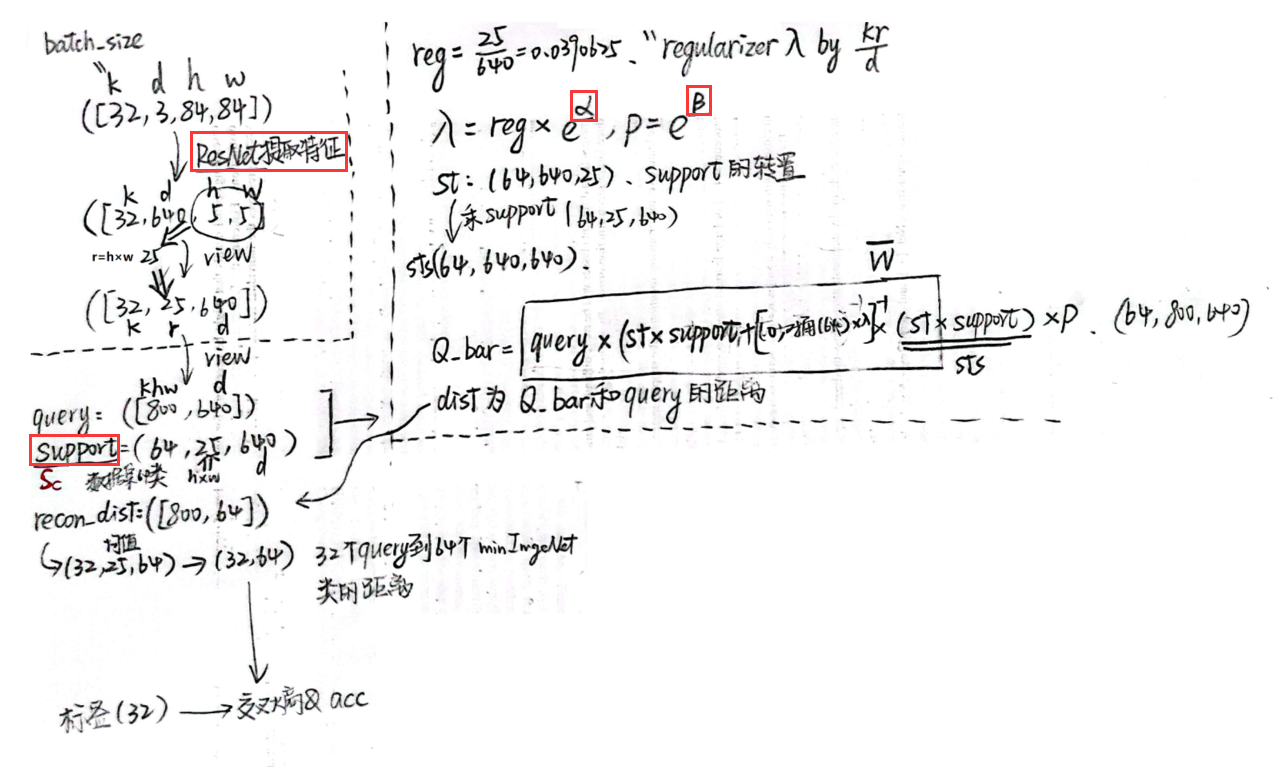 batch_size
"k d h w
([32,3,84,84])
ResNet提取特征
k d h w
([32,640,5,5]
r=h×w 25 view
([32,25,640])
k r d
view
khw d
query=([800,640])
support=(64,25,640)
Sc 数据集64类 h×w d
recon_dist=([800,64])
均值
(32,25,64)→(32,64) 32个query到64个minImgeNet
类的距离
标签(32)→交叉熵& acc
reg=25/640=0.0390625、"regularizer λ by kr/d
λ=reg×e^α,ρ=e^β
st:(64,640,25)、support的转置
乘support(64,25,640)
sts(64,640,640).
W
Q_bar=query×(st×support+[×λ]^-1×(st×support)×ρ、(64,800,640)
sts
dist为Q_bar和query的距离